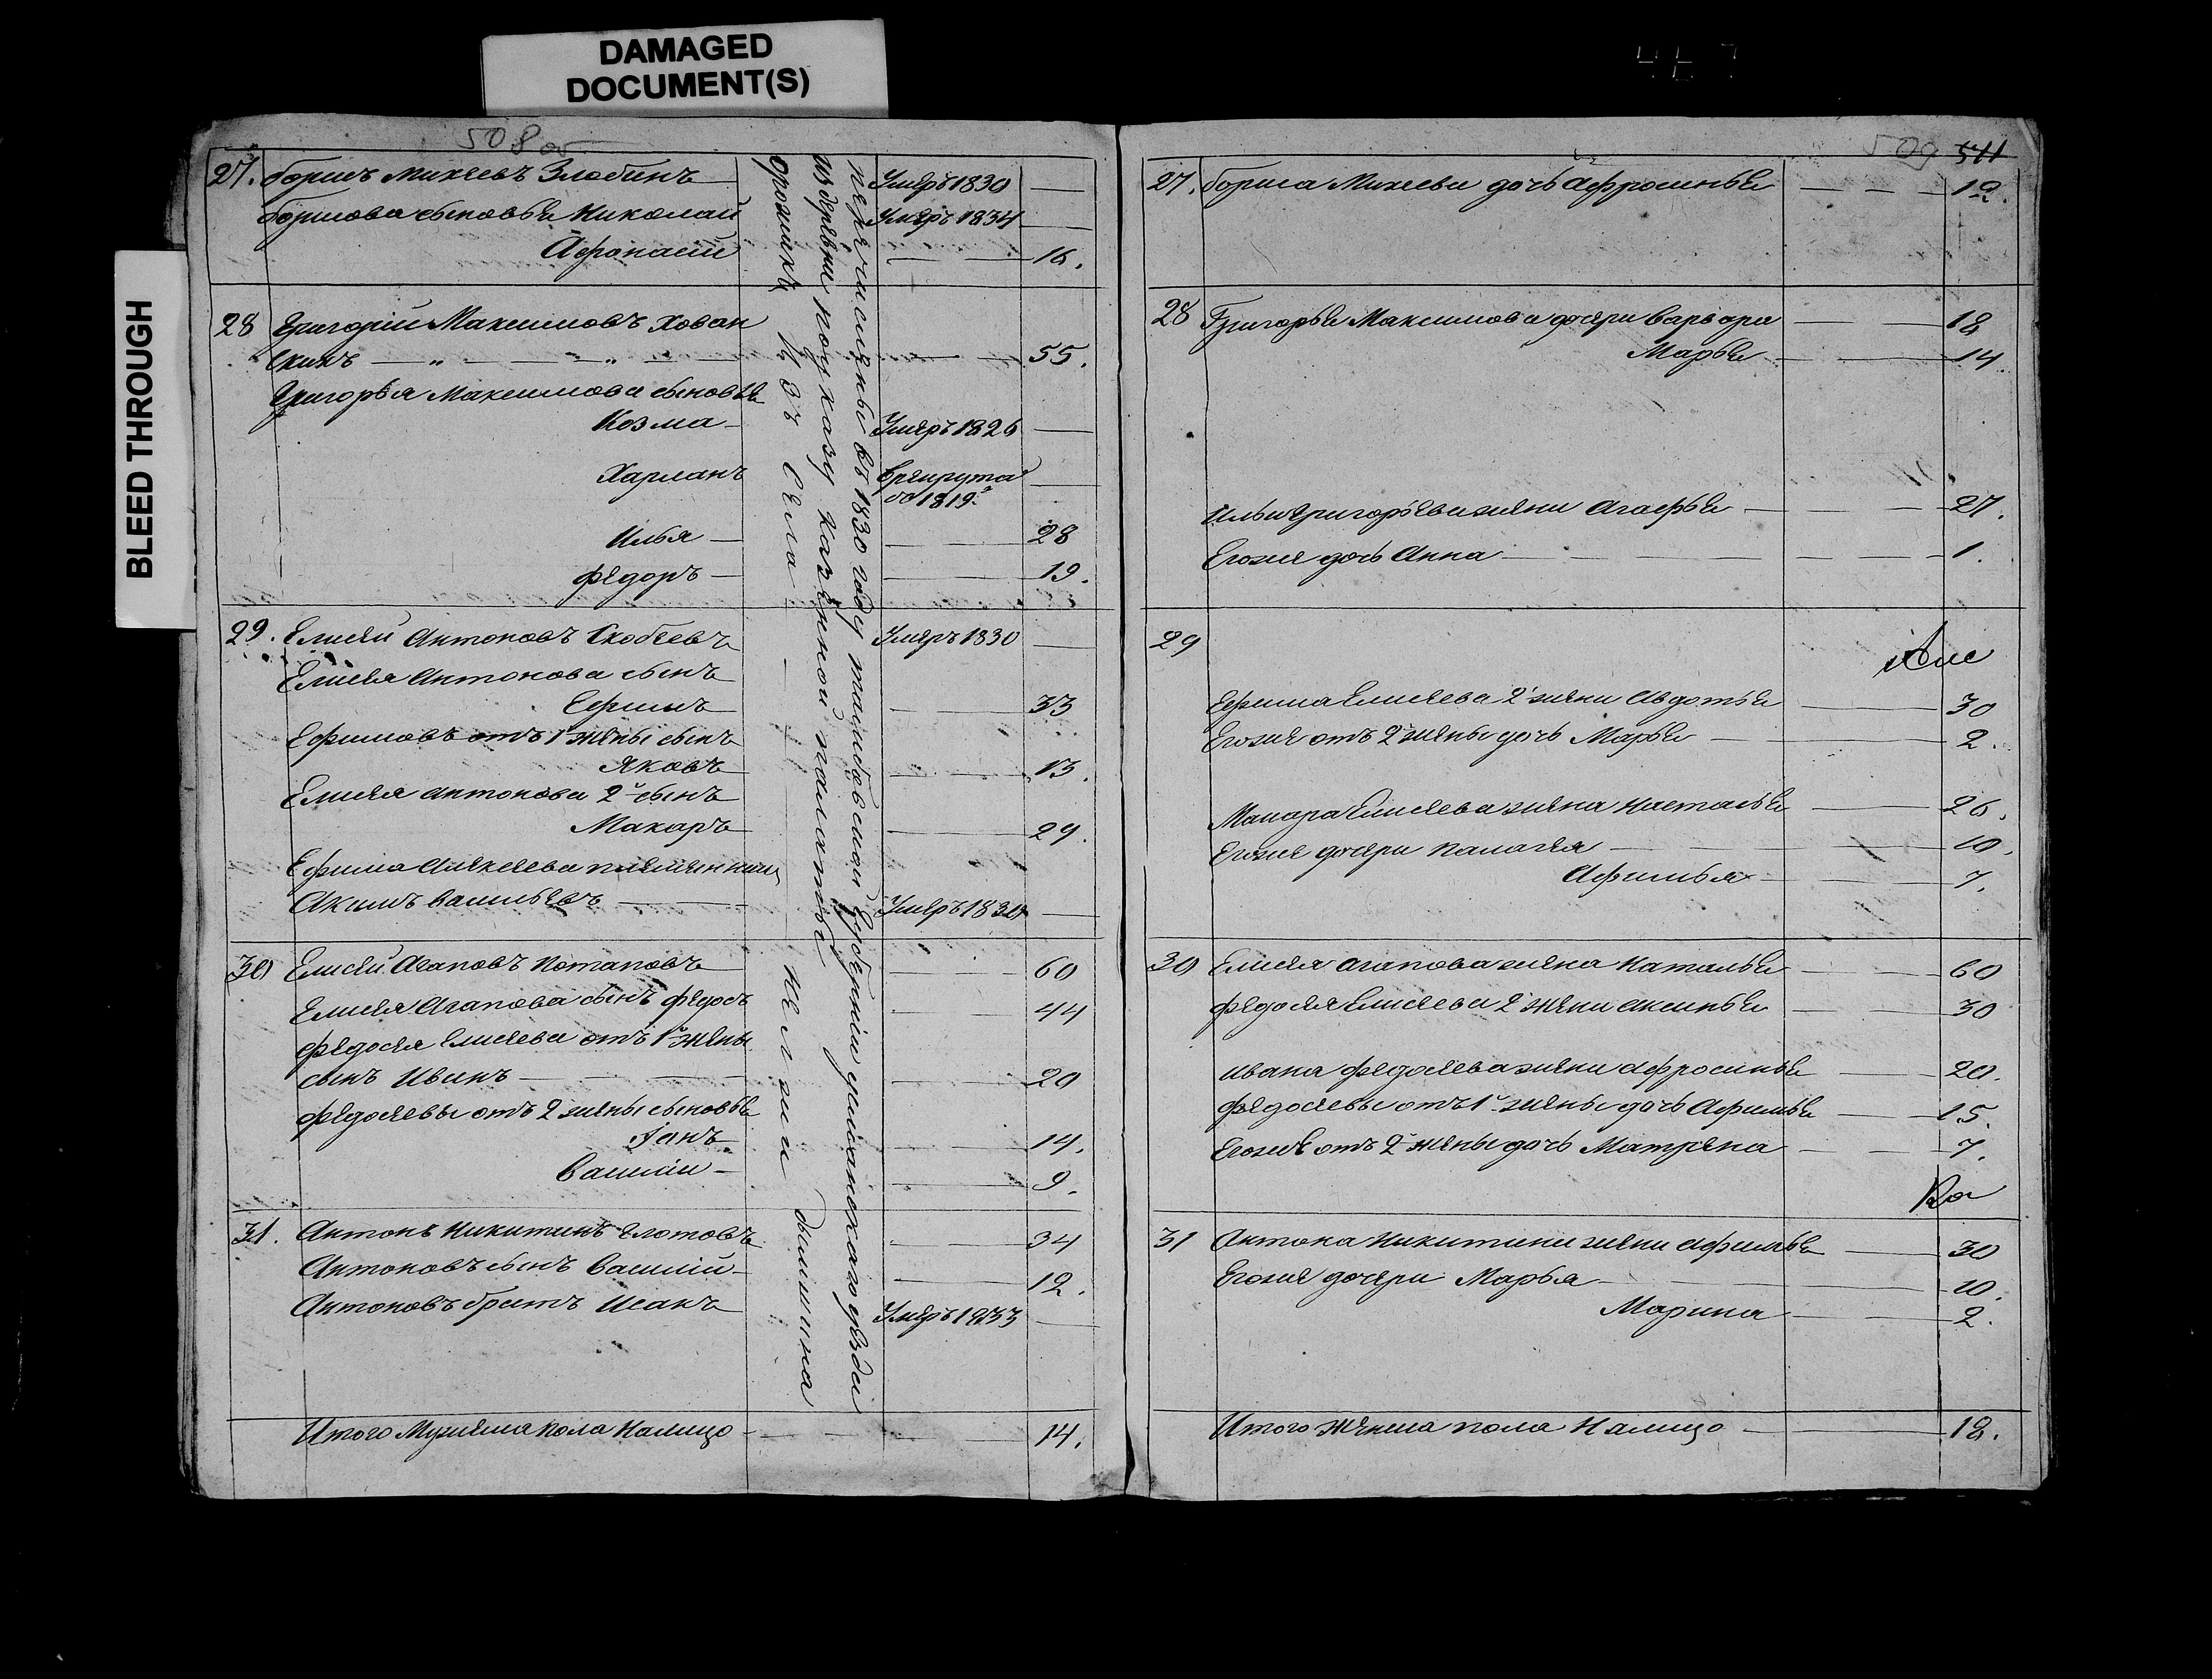 DAMAGED
DOCUMENT(S)
BLEED THROUGH
508 об
27. Борисъ Михеевъ Злобинъ Умеръ 1830 —
Борисова сыновья Николай Умеръ 1834 —
Афонасій — 16.
28 Григорій Максимовъ Хован
скинъ — „ — „ — 55.
Григорья Максимова сыновья
Козма — Умеръ 1826 —
Харланъ в рекрута —
съ 1819.
Илья — 28
Федоръ — 19.
29. Елисей Антоновъ Скобеевъ Умеръ 1830 —
Елисея Антонова сынъ
Ефимъ — 33
Ефимовъ отъ 1й жены сынъ
Яковъ — 13.
Елисея Антонова 2й сынъ
Макаръ — 29.
Ефима племянникъ
Акимъ Васильевъ — Умеръ 1834 —
30 Елисей Агаповъ Потаповъ — 60
Елисея Агапова сынъ Федосъ — 44
Федосея Елисеева отъ 1й жены
сынъ Иванъ — 20
Федосеевы отъ 2 жены сыновья
Іанъ — 14.
Василій — 9.
31. Антонъ Никитинъ — 34
Антоновъ сынъ Василій — 12.
Антоновъ братъ Исакъ Умеръ 1833 —
Итого Мужеска пола Налицо — 14.
перечислены въ 1830 году тамбовской Губерніи уезда
из деревни по указу казенной палаты
изъ села
509 511
27. Бориса Михеева дочь Афросинья — 12.
28 Григорья Максимова дочери Варвара — 18
Марья — 14
Ильи Григорьева жена Агафья — 27.
Егоже дочь Анна — 1.
29
Ефима Елисеева 2 жена Авдотья — 30
Егоже отъ 2й жены дочь Марья — 2.
Макара Елисеева жена Настасья — 26.
Егоже дочери Палагея — 10.
Афимья — 7.
30 Елисея Агапова жена Наталья — 60
Федосея Елисеева 2 жена Аксинья — 30
Ивана Федосеева жена Афросинья — 20.
Федосеевы отъ 1й жены дочь Афимья — 15.
Егоже отъ 2й жены дочь Матрена — 7.
31 Антона Никитина жена Афимья — 30
Егоже дочери Марья — 10.
Марина — 2.
Итого Женска пола Налицо — 18.